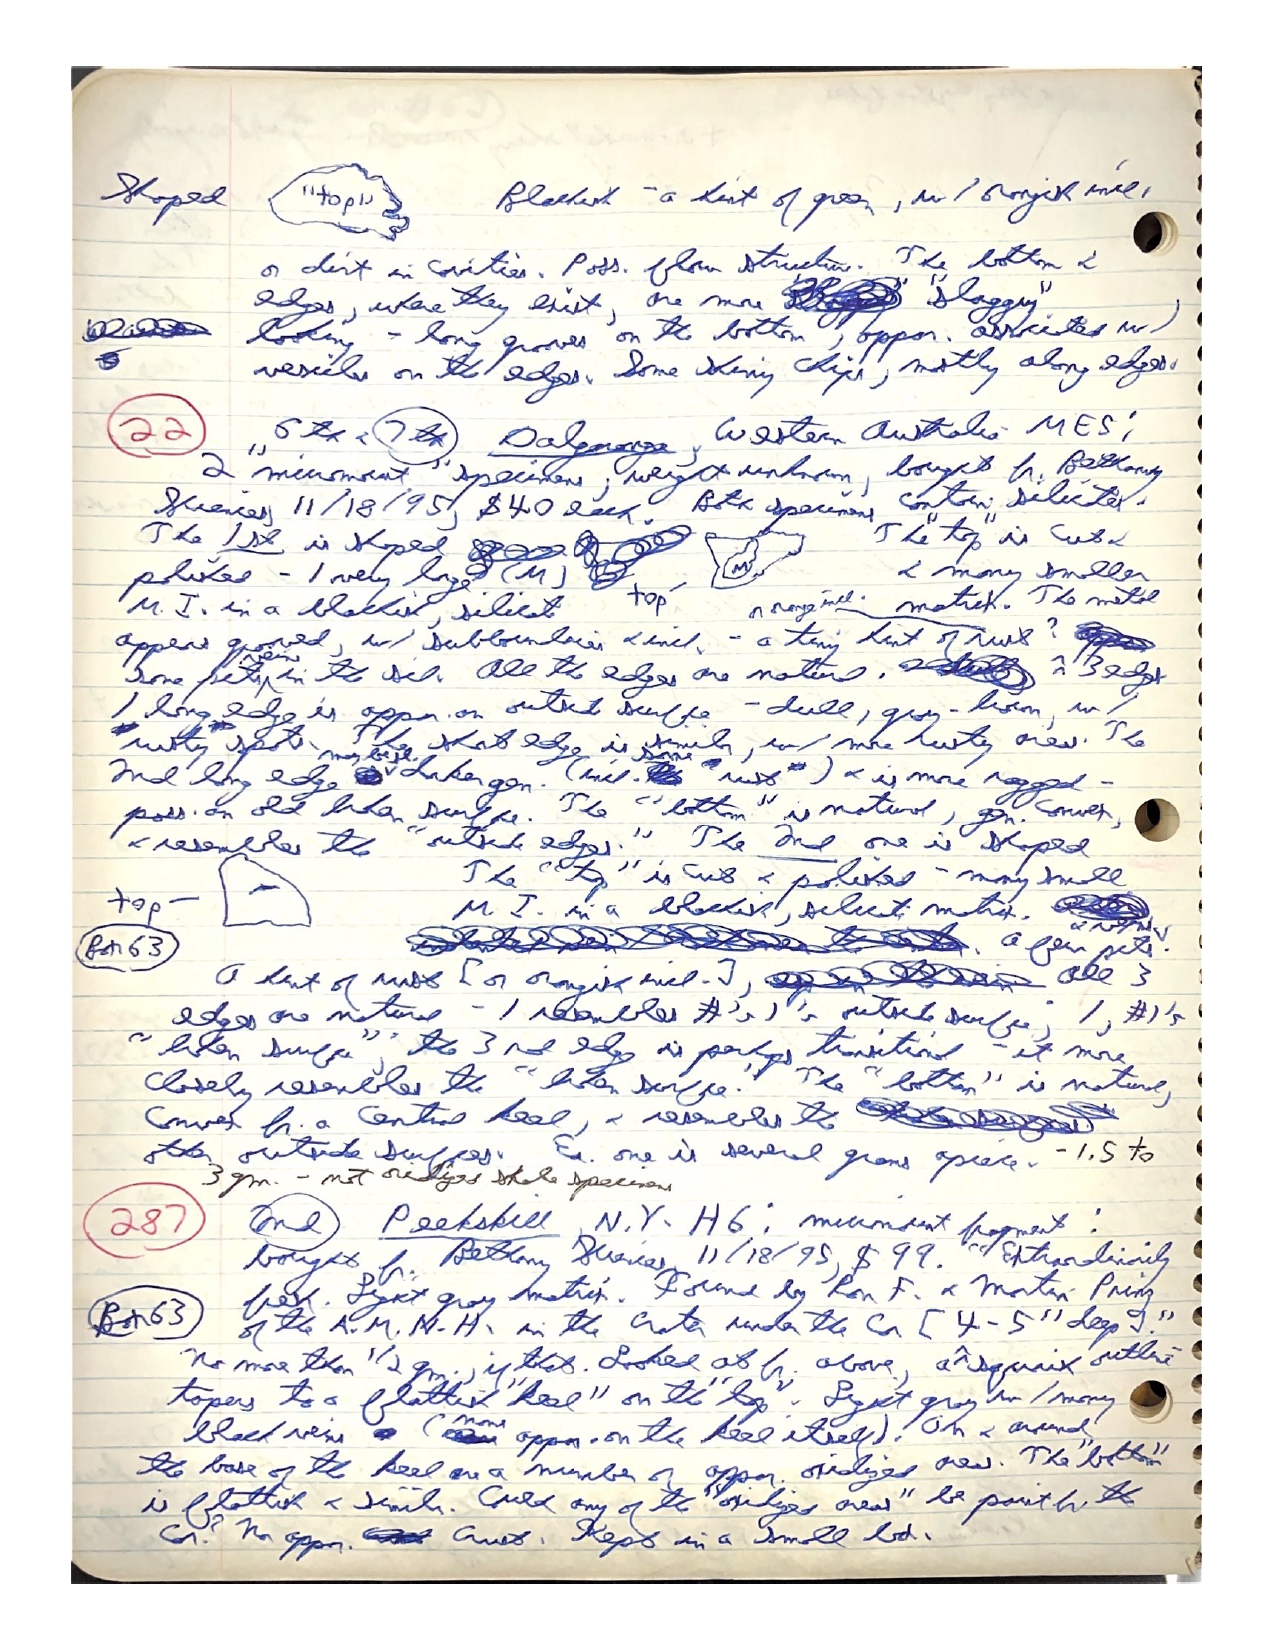 Shaped "top" Blackish - a hint of green, w/ orangish incl.
or dirt in cavities. Poss. flow structure. The bottom &
edges, where they exist, are more "slaggy"
looking - long grooves on the bottom, appar. associated w/
vesicles on the edges. Some shiny chips, mostly along edges.
22 6th & 7th Dalgaranga, Western Australia MES;
2 "micromount" specimens, weight unknown, bought fr. Bethany
Sciences, 11/18/95, $40 each. Both specimens contain silicates.
The 1st is shaped The "top" is cut &
polished - 1 very large (M) M & many smaller
top
M.I. in a blackish, silicate orange incl. matrix. The metal
appears grooved, w/ subboundaries & incl. - a tiny hint of rust?
Some pits in the sil. All the edges are natural. 3 edges
1 long edge is appar. an outside surface - dull, gray-brown, w/
"rusty" spots. The short edge is similar, w/ more rusty areas. The
2nd long edge may be sl. darker gen. (incl. some "rust") & is more ragged -
poss. an old broken surface. The "bottom" is natural, gen. convex,
& resembles the "outside edges." The 2nd one is shaped
The "top" is cut & polished - many small
top -
M.I. in a blackish, silicate matrix.
Box 63
A few pits.
A hint of rust [or orangish incl.], All 3
edges are natural - 1 resembles #1's outside surface; 1, #1's
"broken surface"; the 3rd edge is perhaps transitional - it more
closely resembles the "broken surface." The "bottom" is natural,
convex fr. a central keel, & resembles the
other outside surfaces. Ea. one is several grams apiece. - 1.5 to
3 gm. - not oxidized stable specimens
287 2nd Peekskill, N.Y. H6; micromount fragment;
bought fr. Bethany Sciences, 11/18/95, $99. "Extraordinarily
fresh. Light gray matrix. Found by Ron F. & Martin Prinz
Box 63
of the A.M.N.H. in the crater under the car [4-5" deep]."
No more than 1/2 gm., if that. Looked at fr. above, a squarish outline
tapers to a flattish "keel" on the "top". Light gray w/ many
black veins (none appar. on the keel itself). On & around
the base of the keel are a number of appar. oxidized areas. The "bottom"
is flattish & similar. Could any of the "oxidized areas" be paint fr. the
car? No appar. crust. Kept in a small bx.